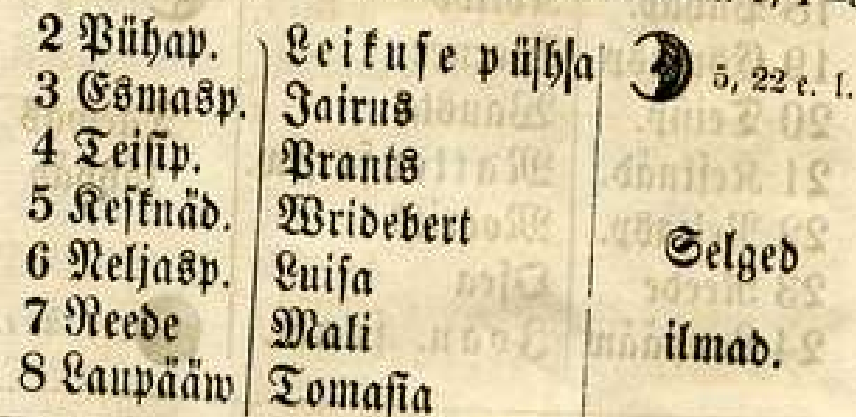 2 Pühap. Leikuse püſhſa 5, 22 e. l.
3 Esmasp. Jairus
4 Teiſip. Prants
5 Keſknäd. Wridebert
6 Neljasp. Luiſa Selged
7 Reede Mali ilmad.
8 Laupääw Tomaſia